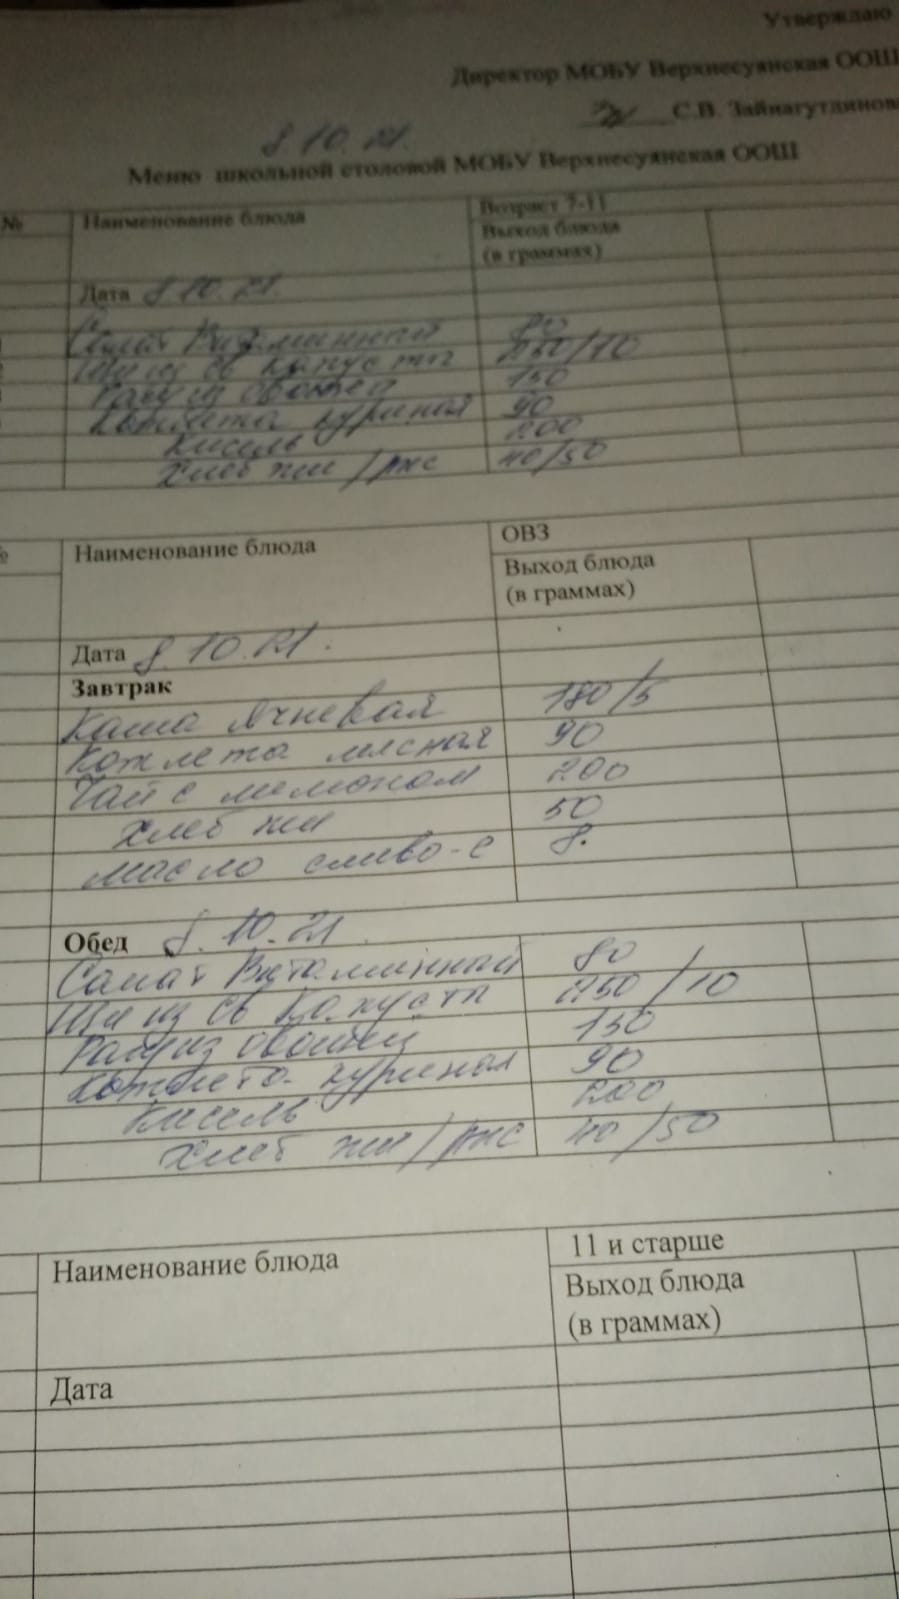 Утверждаю
Директор МОБУ Верхнесуянская ООШ
С.В. Зайнагутдинова
8.10.21.
Меню школьной столовой МОБУ Верхнесуянская ООШ
№ Наименование блюда Возраст 7-11
Выход блюда
(в граммах)
Дата 8.10.21.
Салат Витаминный 80
Щи из св капусты 250/10
Рагу из овощей 150
Котлета куриная 90
Кисель 200
Хлеб пш/ржс 40/50
№ Наименование блюда ОВЗ
Выход блюда
(в граммах)
Дата 8.10.21.
Завтрак
Каша Ячневая 180/5
Котлета мясная 90
Чай с лимоном 200
Хлеб пш 50
масло сливо-е 8.
Обед 8.10.21
Салат Витаминный 80
Щи из св Капусты 250/10
Рагу из овощей 150
Котлета куриная 90
Кисель 200
Хлеб пш/ржс 40/50
Наименование блюда 11 и старше
Выход блюда
(в граммах)
Дата